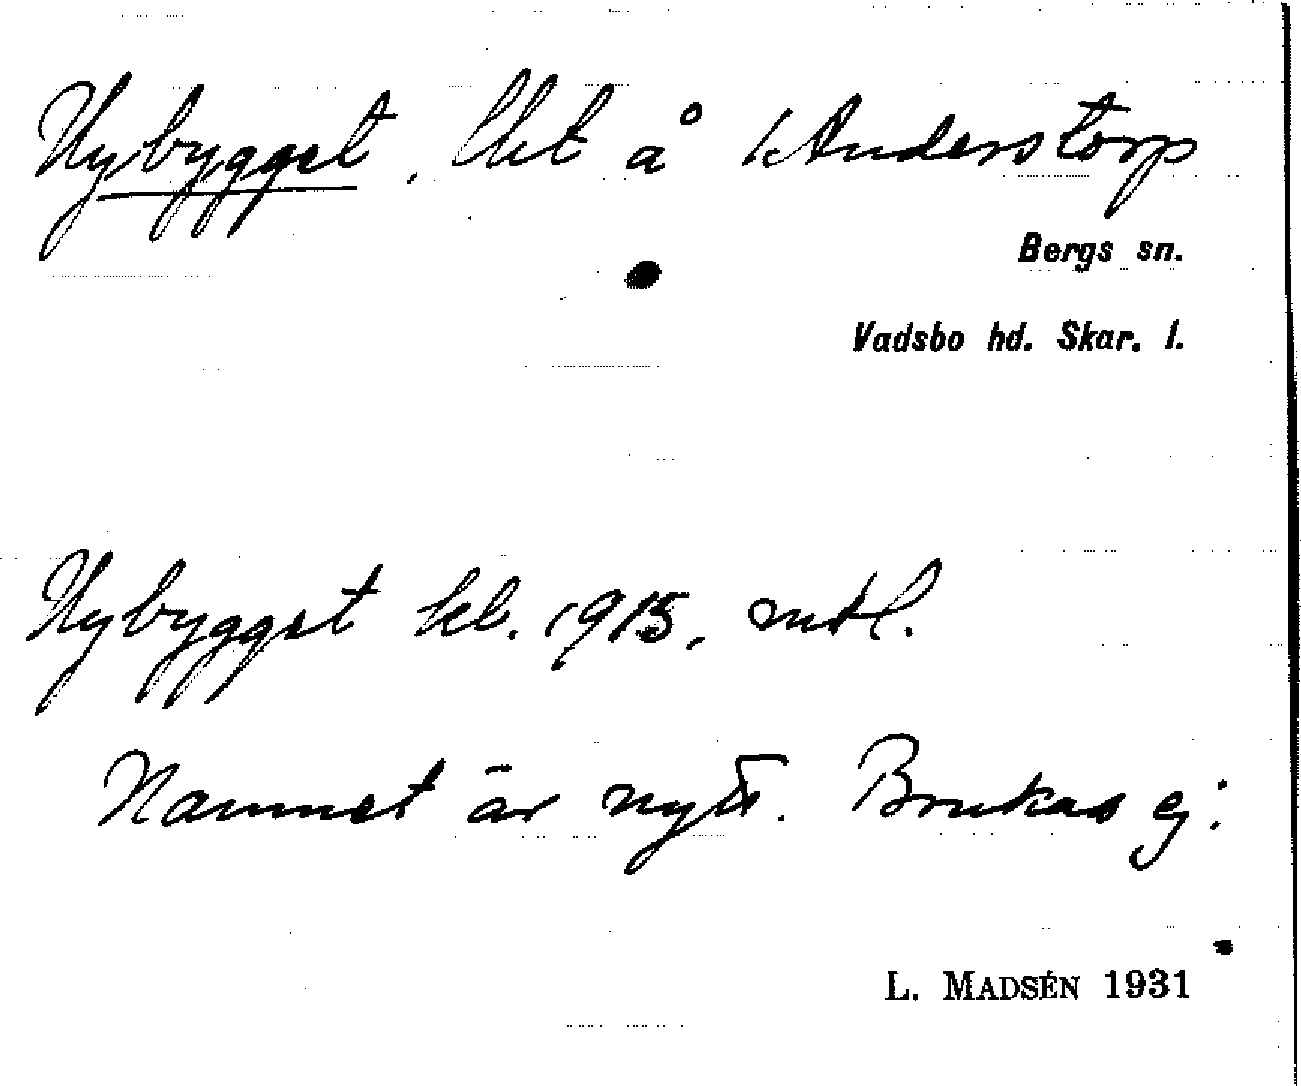 Nybygget, lht å 1 Anderstorp
Bergs sn.
Vadsbo hd. Skar. l.
Nybygget kl. 1915, mtl.
Namnet är nytt. Brukas ej.
L. MADSÉN 1931